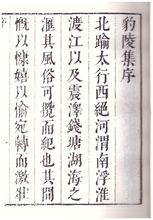 豹陵集序
北踰太行西絕河渭南浮淮
渡江以及震澤錢塘湖海之
滙其風俗可攬而紀也其間
慨以慷嬉以愉宛轉而激壯